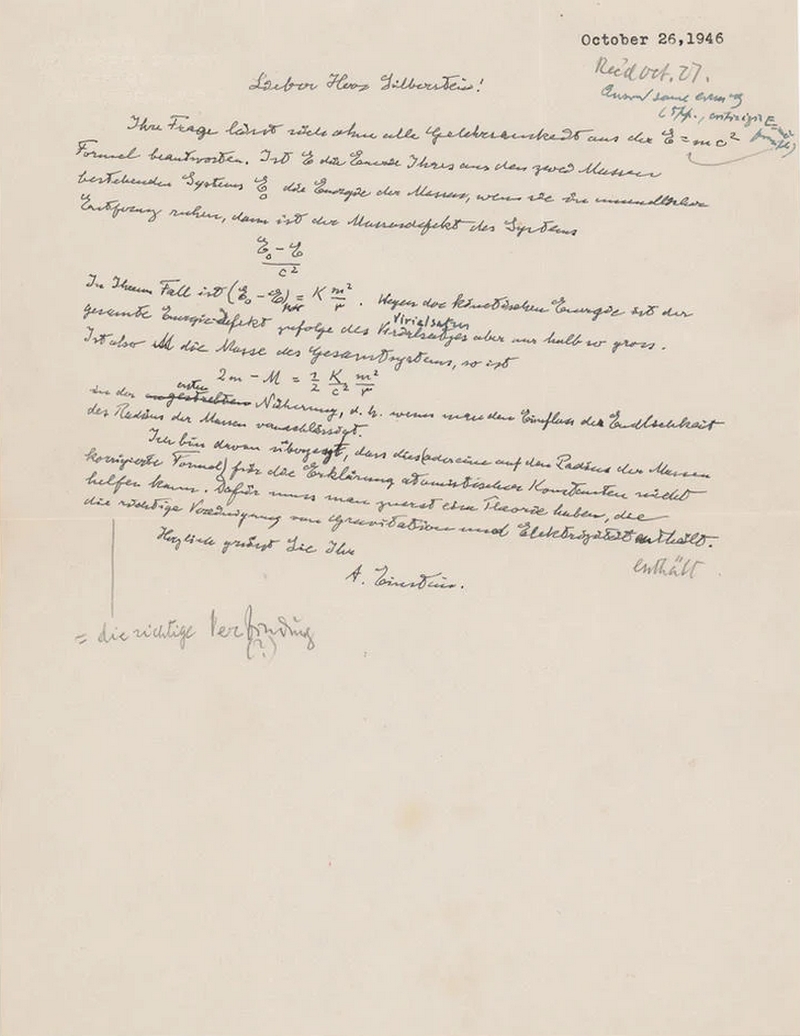 October 26,1946
Rec'd Oct. 27.
Answ/ same evening
Lieber Herr Silberstein!
Ihre Frage lässt sich ohne alle Gelehrsamkeit aus der E = mc²
Formel beantworten. Ist E die Energie Ihres aus den zwei Massen
bestehenden Systems E₀ die Energie der Massen, wenn sie in unendlicher
Entfernung ruhen, dann ist der Massendefekt des Systems
E₀ - E
c²
In Ihrem Fall ist (E₀ - E) = K m²/r . Wegen der kinetischen Energie ist der
Virialsatzes
gesamte Energiedefekt zufolge des aber nur halb so gross.
Ist also M die Masse des Gesamtsystems, so ist
2m - M = 1/2 K/c² m²/r
ersten
in der Näherung, d. h. wenn man den Einfluss der Endlichkeit
des Radius der Massen vernachlässigt.
Ich bin davon überzeugt, dass dies (oder eine auf den Radius der Massen
korrigierte Formel) für die Erklärung atomistischer Konstanten nicht
helfen kann. Dafür muss man zuerst eine Theorie haben, die
die richtige Vereinigung von Gravitation und Elektrizität enthält.
enthält
Herzlich grüsst Sie Ihr
A. Einstein.
= die richtige Verbindung
(?)